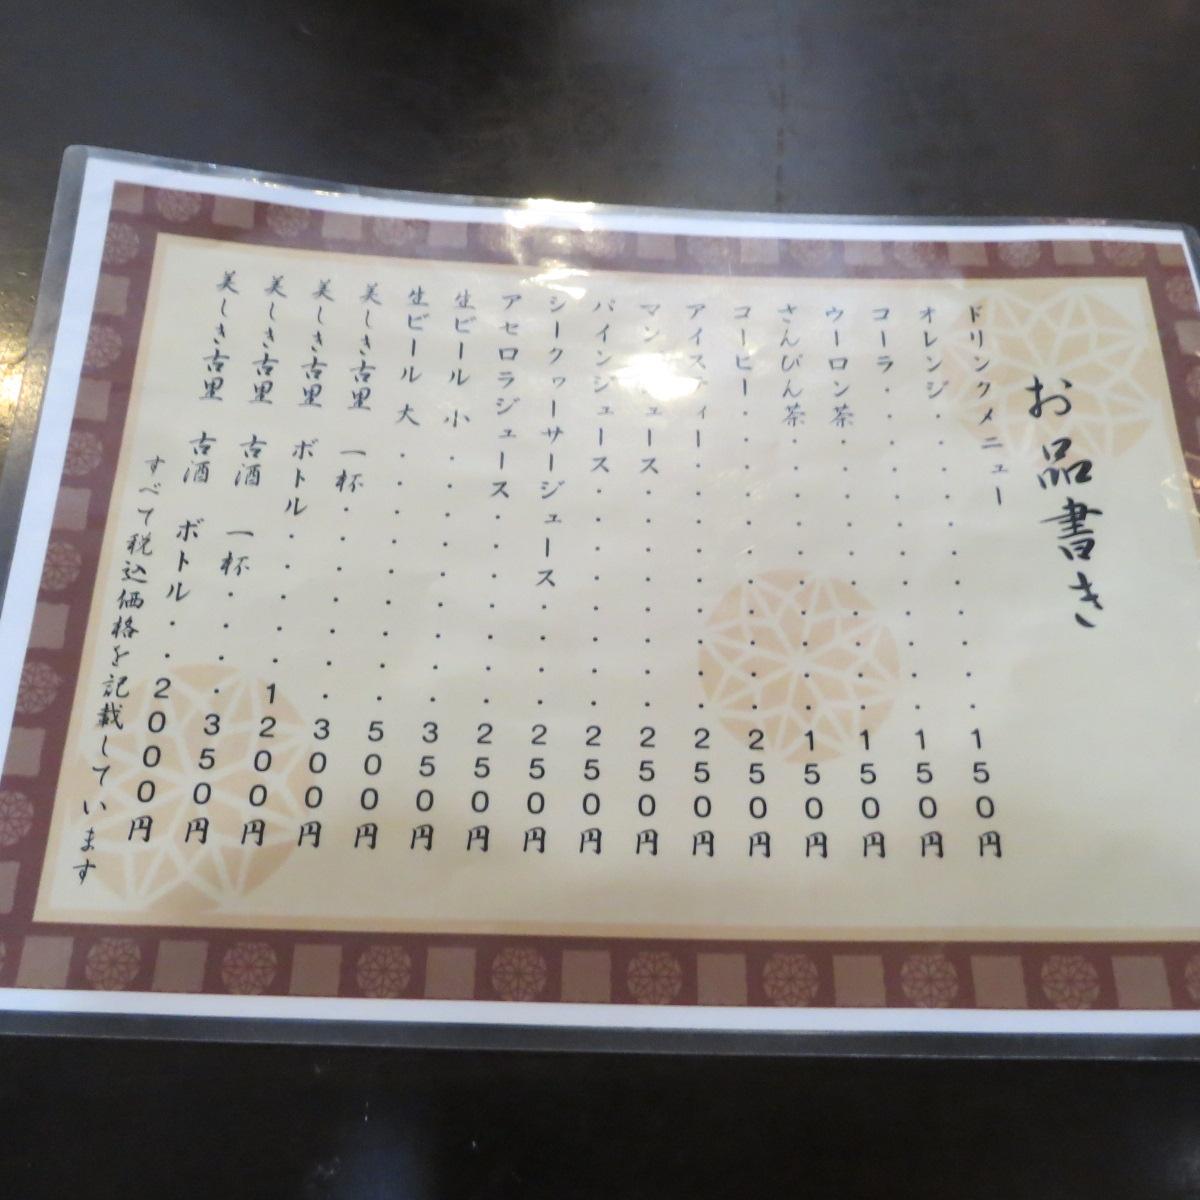 お品書き
ドリンクメニュー
オレンジ・・・・・・・・・・150円
コーラ・・・・・・・・・・・150円
ウーロン茶・・・・・・・・・150円
さんぴん茶・・・・・・・・・150円
コーヒー・・・・・・・・・・250円
アイスティー・・・・・・・・250円
マン ュース・・・・・・・・250円
パインジュース・・・・・・・250円
シークヮーサージュース・・・・250円
アセロラジュース・・・・・・250円
生ビール 小・・・・・・・・350円
生ビール 大・・・・・・・・500円
美しき古里 一杯・・・・・・300円
美しき古里 ボトル・・・・・1200円
美しき古里 古酒 一杯・・・・350円
美しき古里 古酒 ボトル・・2000円
すべて税込価格を記載しています